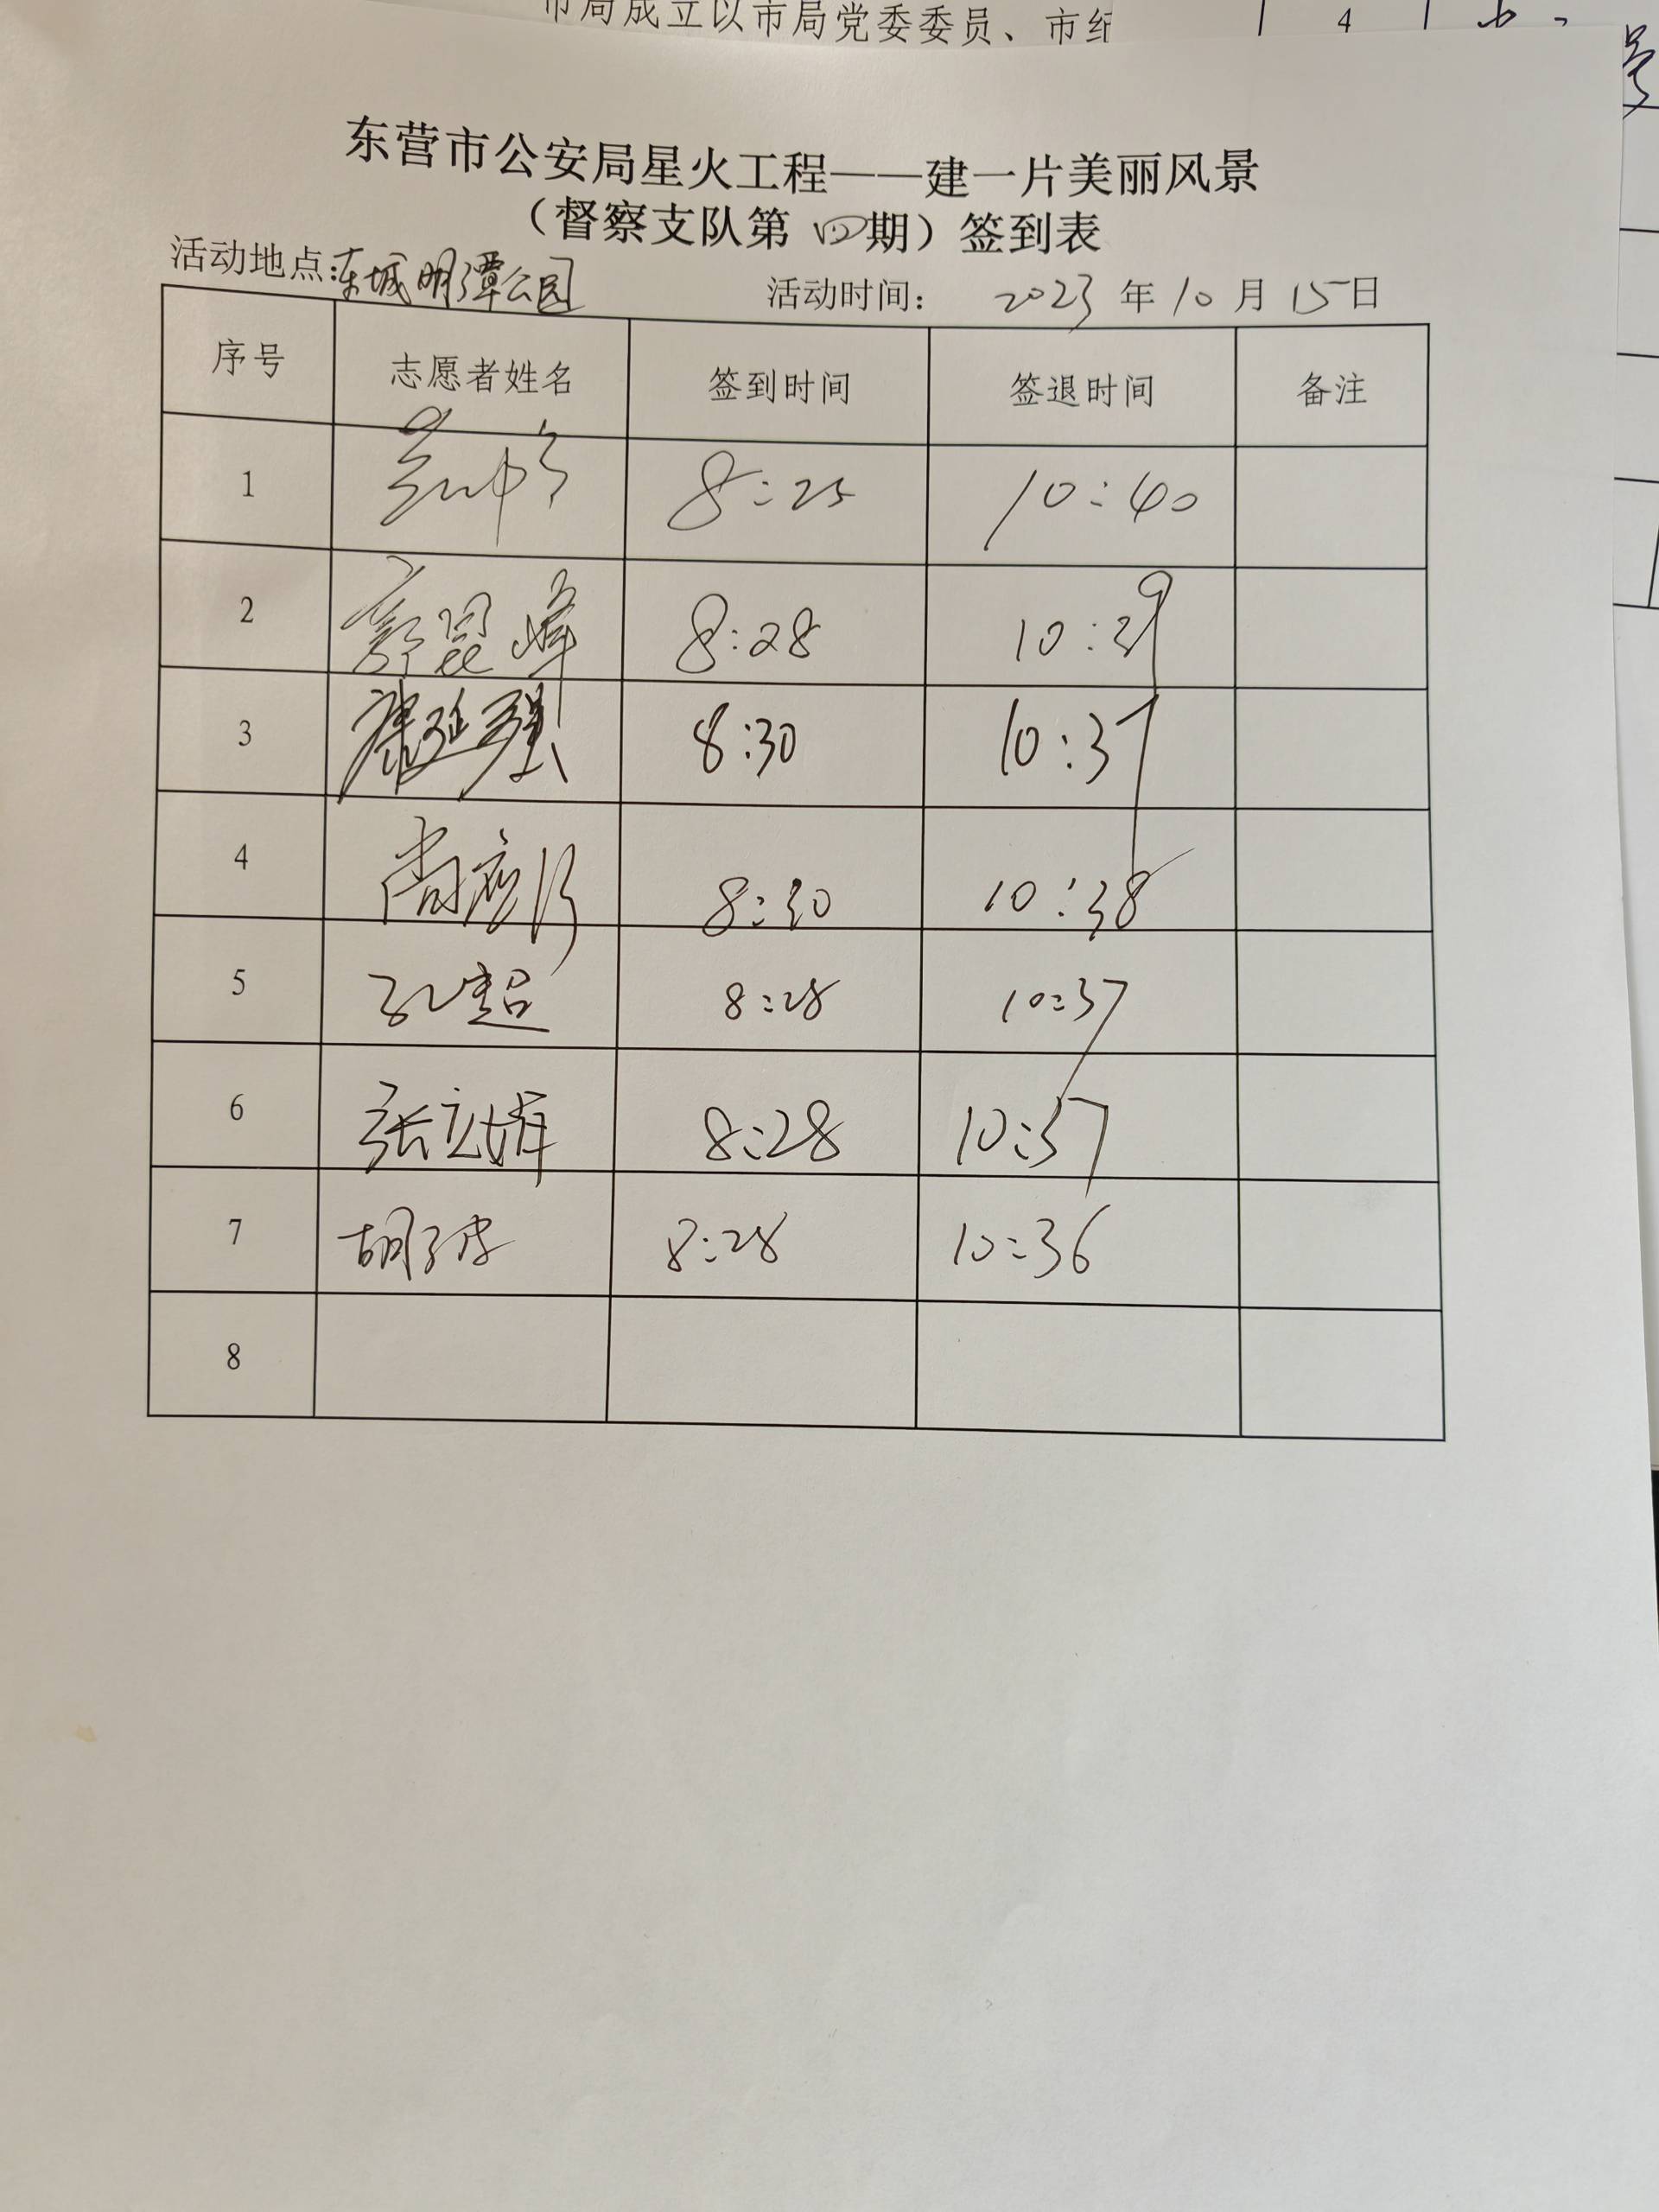 市局成立以市局党委委员、市纪
4
东营市公安局星火工程——建一片美丽风景
（督察支队第四期）签到表
活动地点：东城明潭公园 活动时间： 2023 年 10 月 15 日
序号 志愿者姓名 签到时间 签退时间 备注
1 8:25 10:40
2 郭昆峰 8:28 10:39
3 康延强 8:30 10:37
4 尚 8:30 10:38
5 孔超 8:28 10:37
6 张立 8:28 10:37
7 胡 8:28 10:36
8